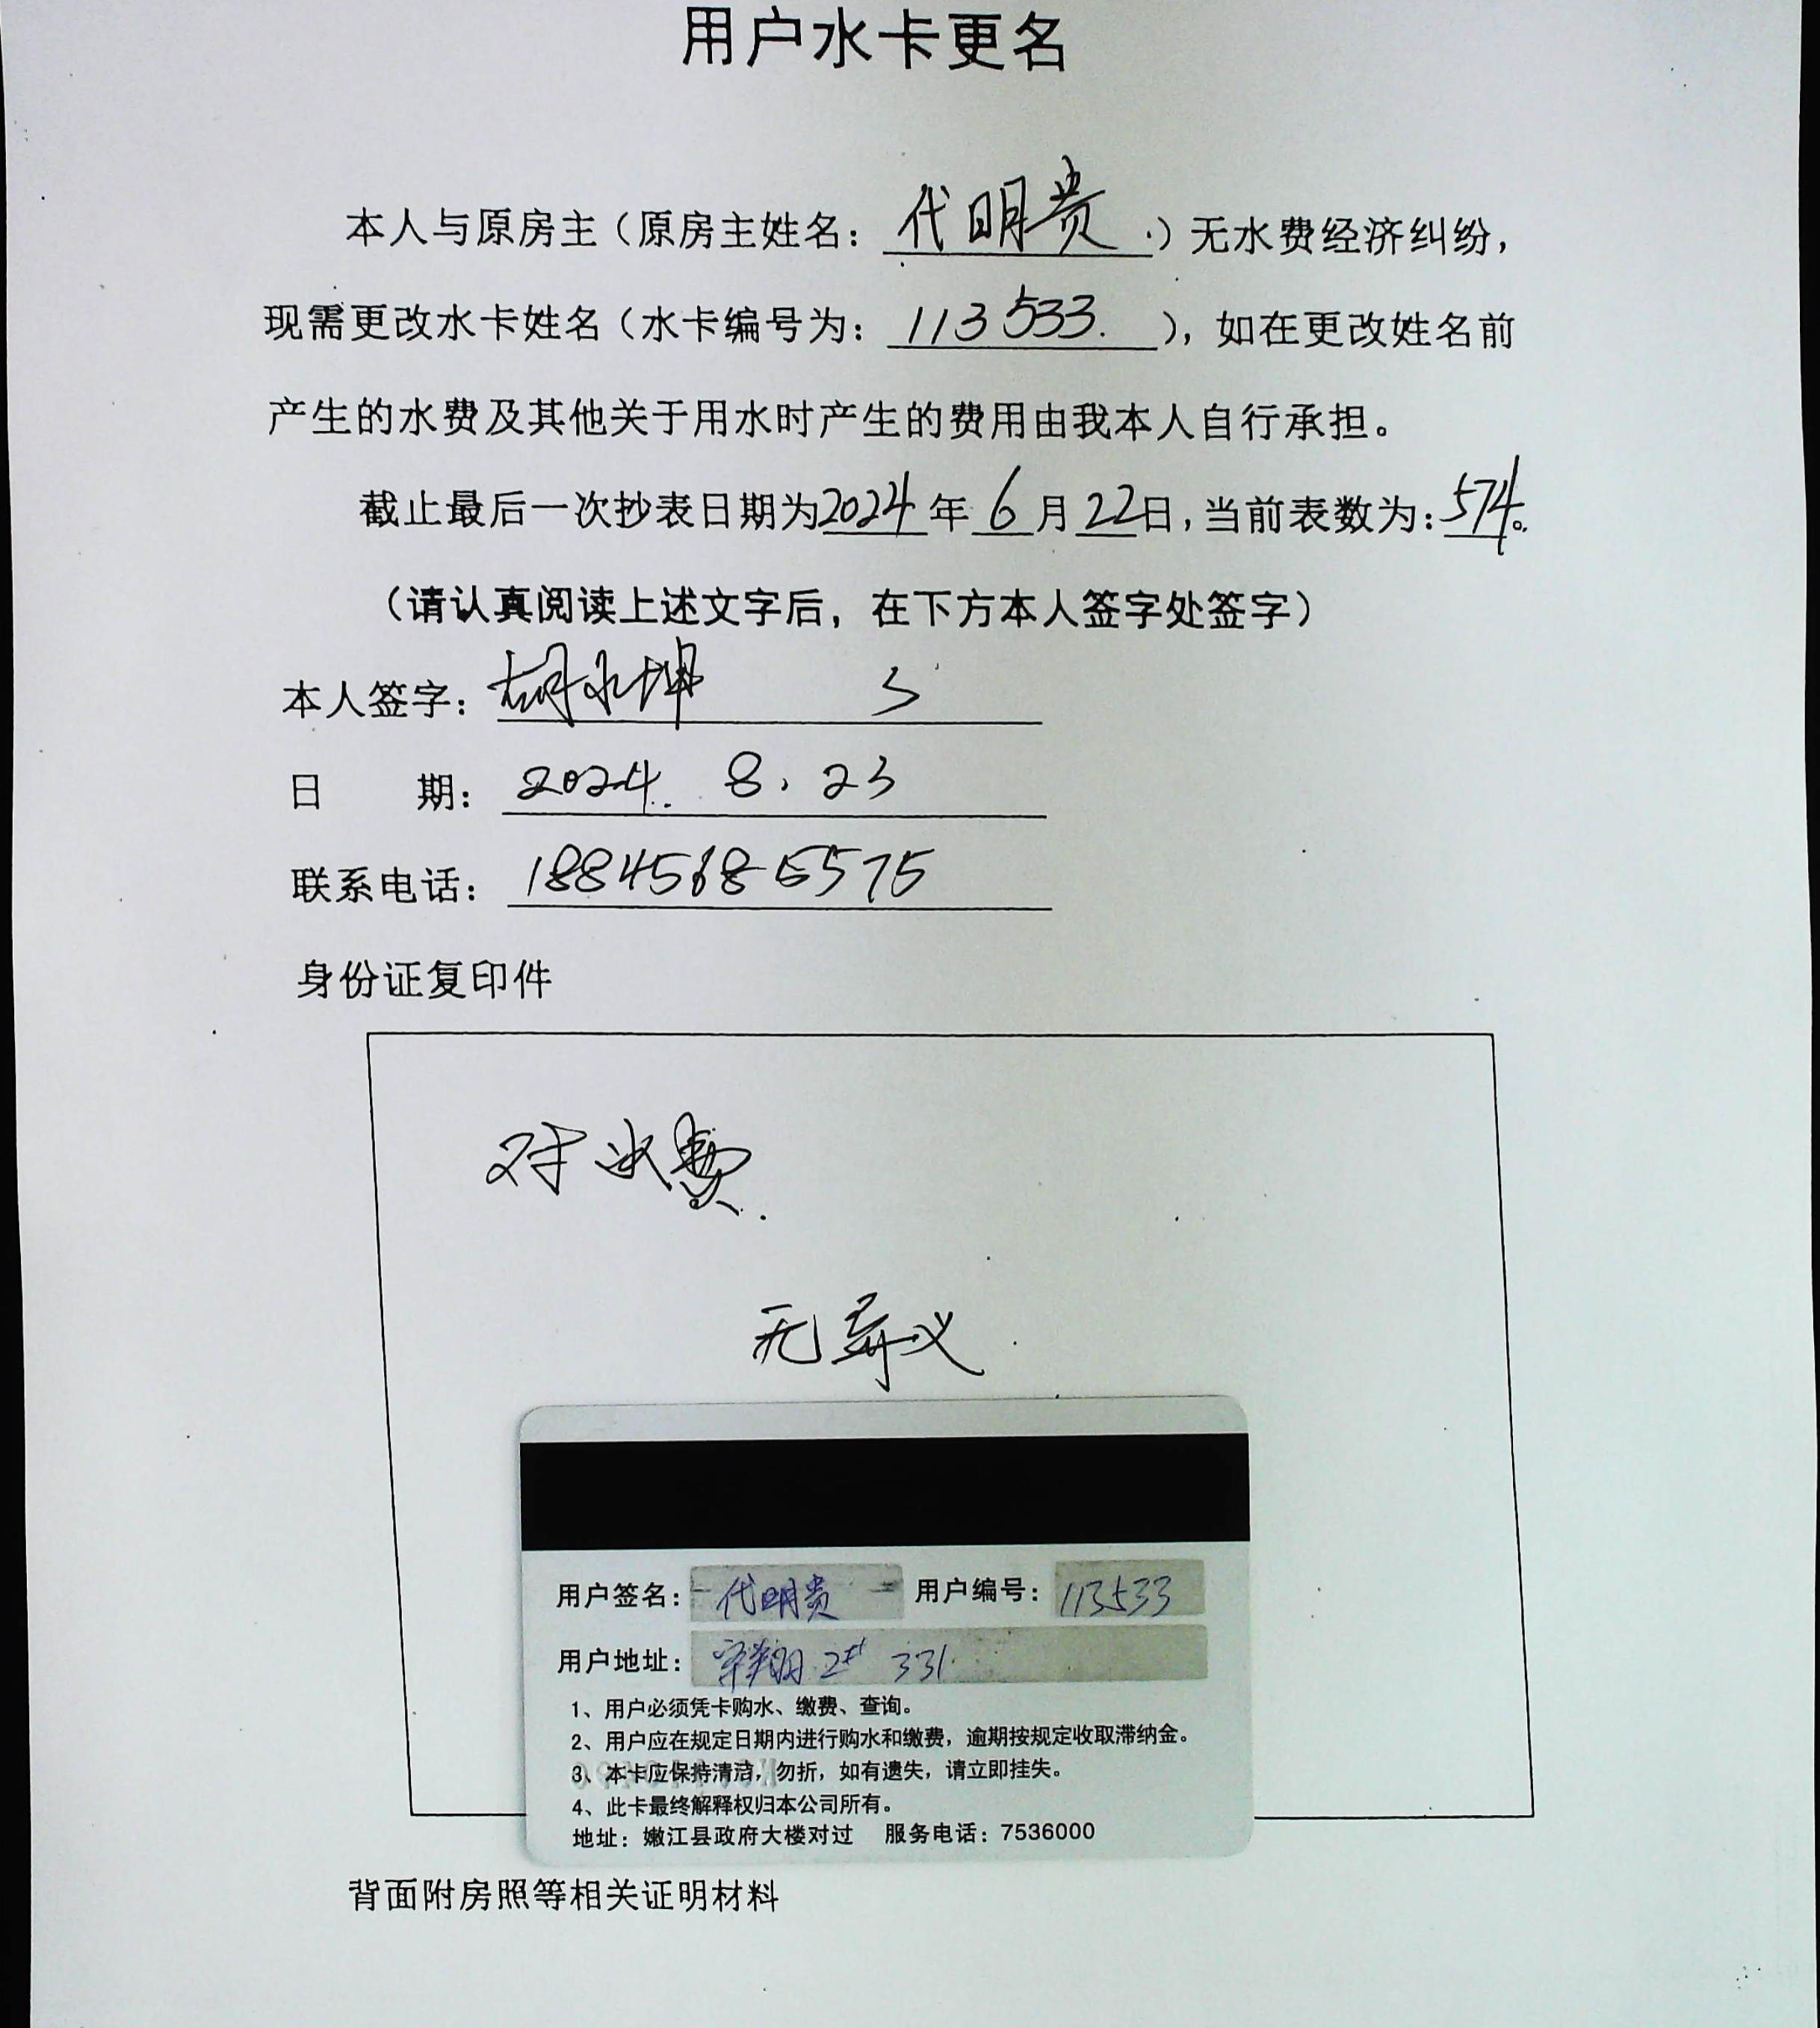 用户水卡更名
本人与原房主（原房主姓名：代明贵）无水费经济纠纷，
现需更改水卡姓名（水卡编号为：113533.），如在更改姓名前
产生的水费及其他关于用水时产生的费用由我本人自行承担。
截止最后一次抄表日期为2024年6月22日，当前表数为：574。
（请认真阅读上述文字后，在下方本人签字处签字）
本人签字：胡永坤
日 期：2024. 8. 23
联系电话：18845685575
身份证复印件
对水费.
无异议.
用户签名：代明贵 用户编号：113533
用户地址：翔 2# 331
1、用户必须凭卡购水、缴费、查询。
2、用户应在规定日期内进行购水和缴费，逾期按规定收取滞纳金。
3、本卡应保持清洁，勿折，如有遗失，请立即挂失。
4、此卡最终解释权归本公司所有。
地址：嫩江县政府大楼对过 服务电话：7536000
背面附房照等相关证明材料